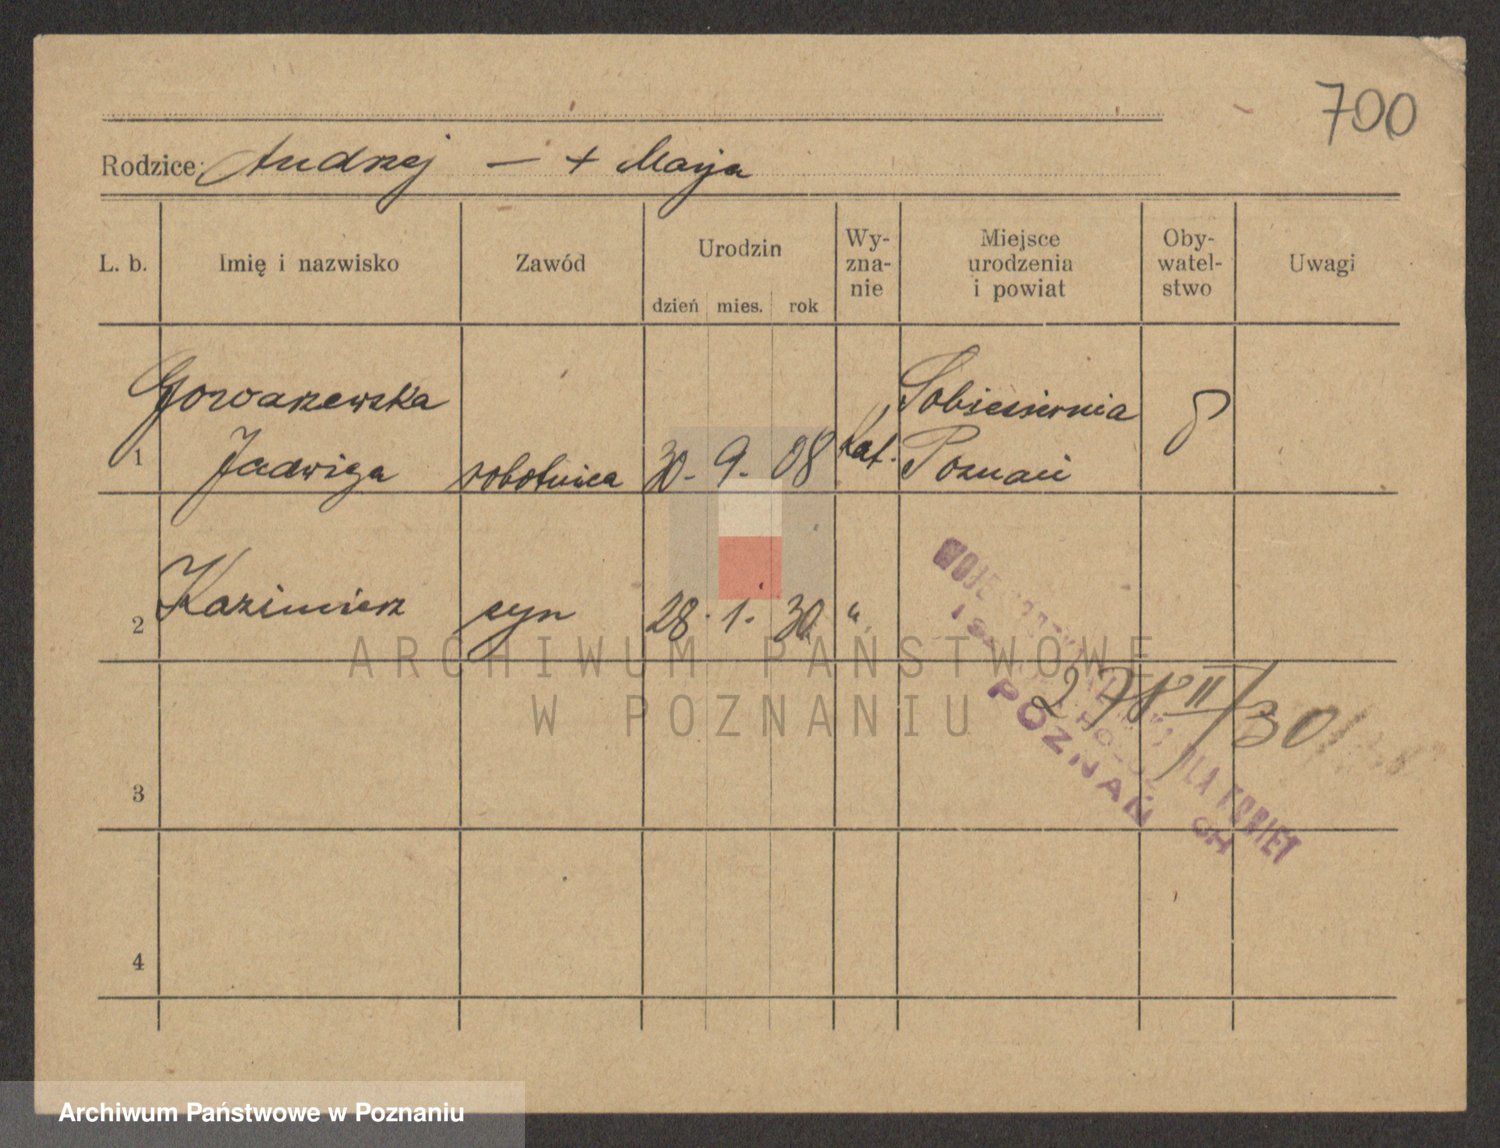 700
Rodzice: Andrzej — + Marja
L. b. Imię i nazwisko Zawód Urodzin dzień mies. rok Wy-zna-nie Miejsce urodzenia i powiat Oby-watel-stwo Uwagi
Gowarzewska
1 Jadwiga robotnica 30. 9. 08 kat. Sobiesiernia Poznań
2 Kazimierz syn 28. 1. 30 "
278 II/30
DLA KOBIET
POZNAŃ
3
4
ARCHIWUM PAŃSTWOWE
W POZNANIU
Archiwum Państwowe w Poznaniu